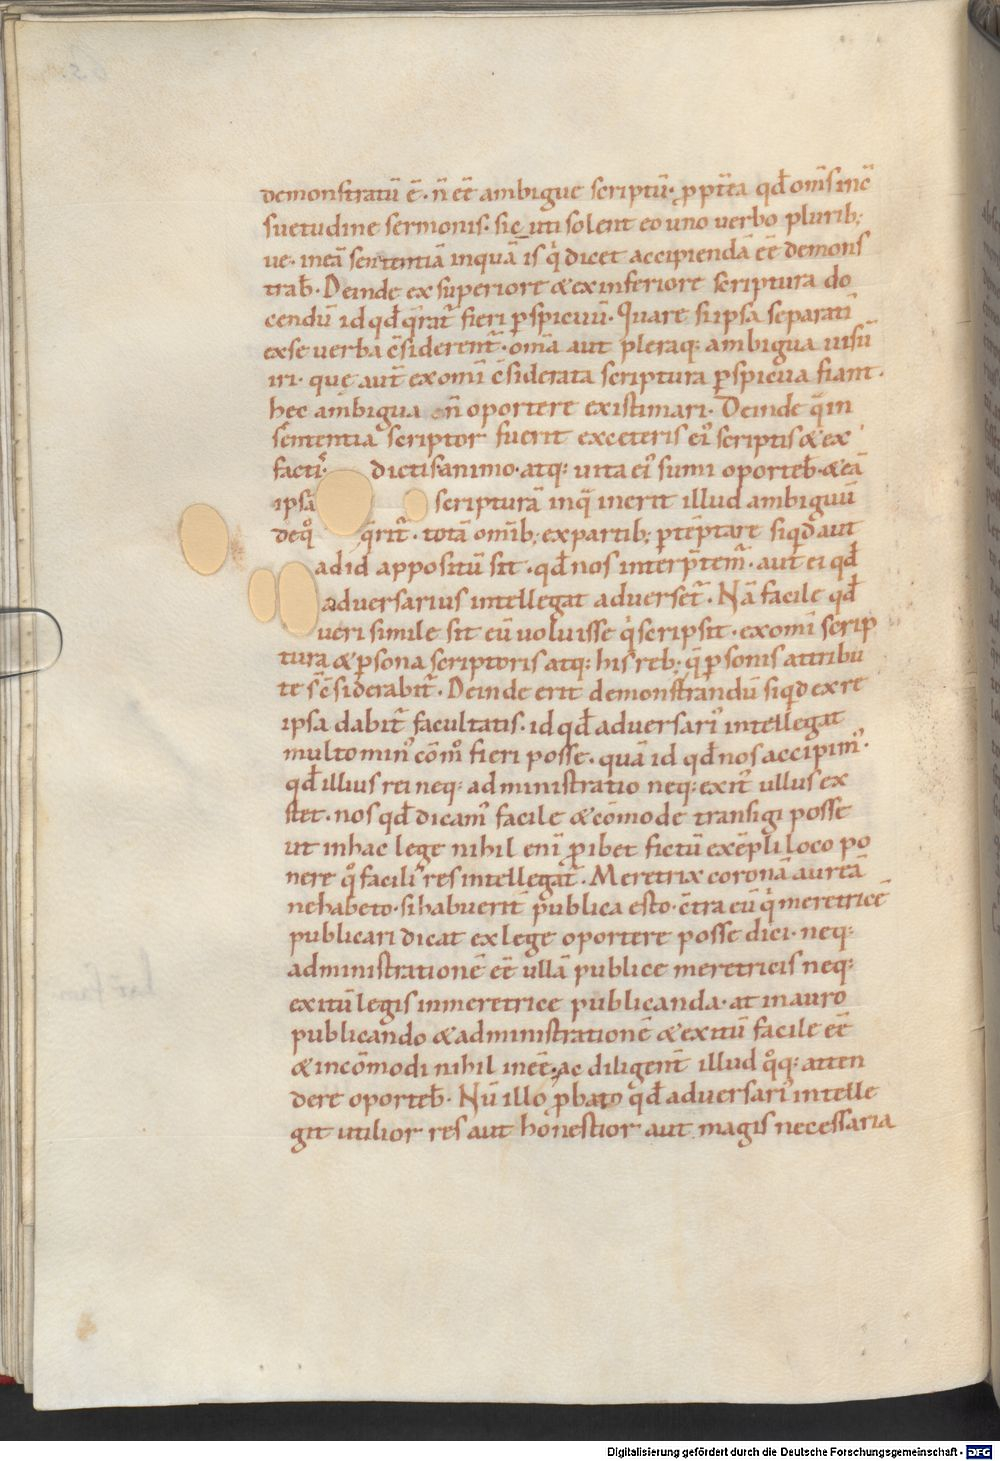 demonstratū ē· n̄ eē ambigue scriptū· ꝓpt̄ea qđ om̄s incō
suetudine sermonis· sic uti solent eo uno uerbo plurib;
ue· ineā sententiā inquā is q̇ dicet accipiendā eē demons
trab̄· Deinde ex superiore & ex inferiore scriptura do
cendū id qđ q̄rat᷑ fieri ꝑspicuū· Quare si ipsa separati
exse uerba c̄siderent᷑· om̄a aut pleraq: ambigua uisū
iri· quę aut̄ ex omī c̄siderata scriptura ꝑspicua fiant·
hec ambigua n̄ oportere existimari· Deinde q̄ in
sententia scriptor fuerit ex ceteris eiꝰ scriptis & ex
factiſ· dictis animo· atq: uita eiꝰ sumi oporteb̄· & eā
ipsā scripturā in q̄ inerit illud ambiguū
de q̊ q̄rit᷑· totā omīb; ex partib; ꝑtēptare siqđ aut
ad id appositū sit· qđ nos interp̄tem᷑· aut ei qđ
aduersarius intellegat aduerset᷑· Nā facile qđ
ueri simile sit eū uoluisse q̇ scripsit· ex omī scrip
tura & ꝑsona scriptoris atq: his reb; q̄ ꝑsonis attribu
te s̄ c̄siderabit᷑· Deinde erit demonstrandū siqđ ex re
ipsa dabit᷑ facultatis· id qđ aduersariꝰ intellegat
multo minꝰ cōm̊ fieri posse· quā id qđ nos accipimꝰ·
qđ illius rei neq: administratio neq: exitꝰ ullus ex
stet· nos qđ dicamꝰ facile & cōmode transigi posse
ut in hac lege nihil enī ꝓibet fictū exēpli loco po
nere q̊ faciliꝰ res intellegat᷑· Meretrix coronā aureā
ne habeto· si habuerit publica esto· c̄tra eū q̇ meretricē
publicari dicat ex lege oportere posse dici· neq:
administrationē eē ullā publice meretricis neq:
exitū legis in meretrice publicanda· at in auro
publicando & administrationē & exitū facile eē
& incōmodi nihil ineē· ac diligent̄ illud q̊q: atten
dere oporteb̄· Nū illo ꝓbato qđ aduersariꝰ intelle
git utilior res aut honestior aut magis necessaria
Digitalisierung gefördert durch die Deutsche Forschungsgemeinschaft - DFG